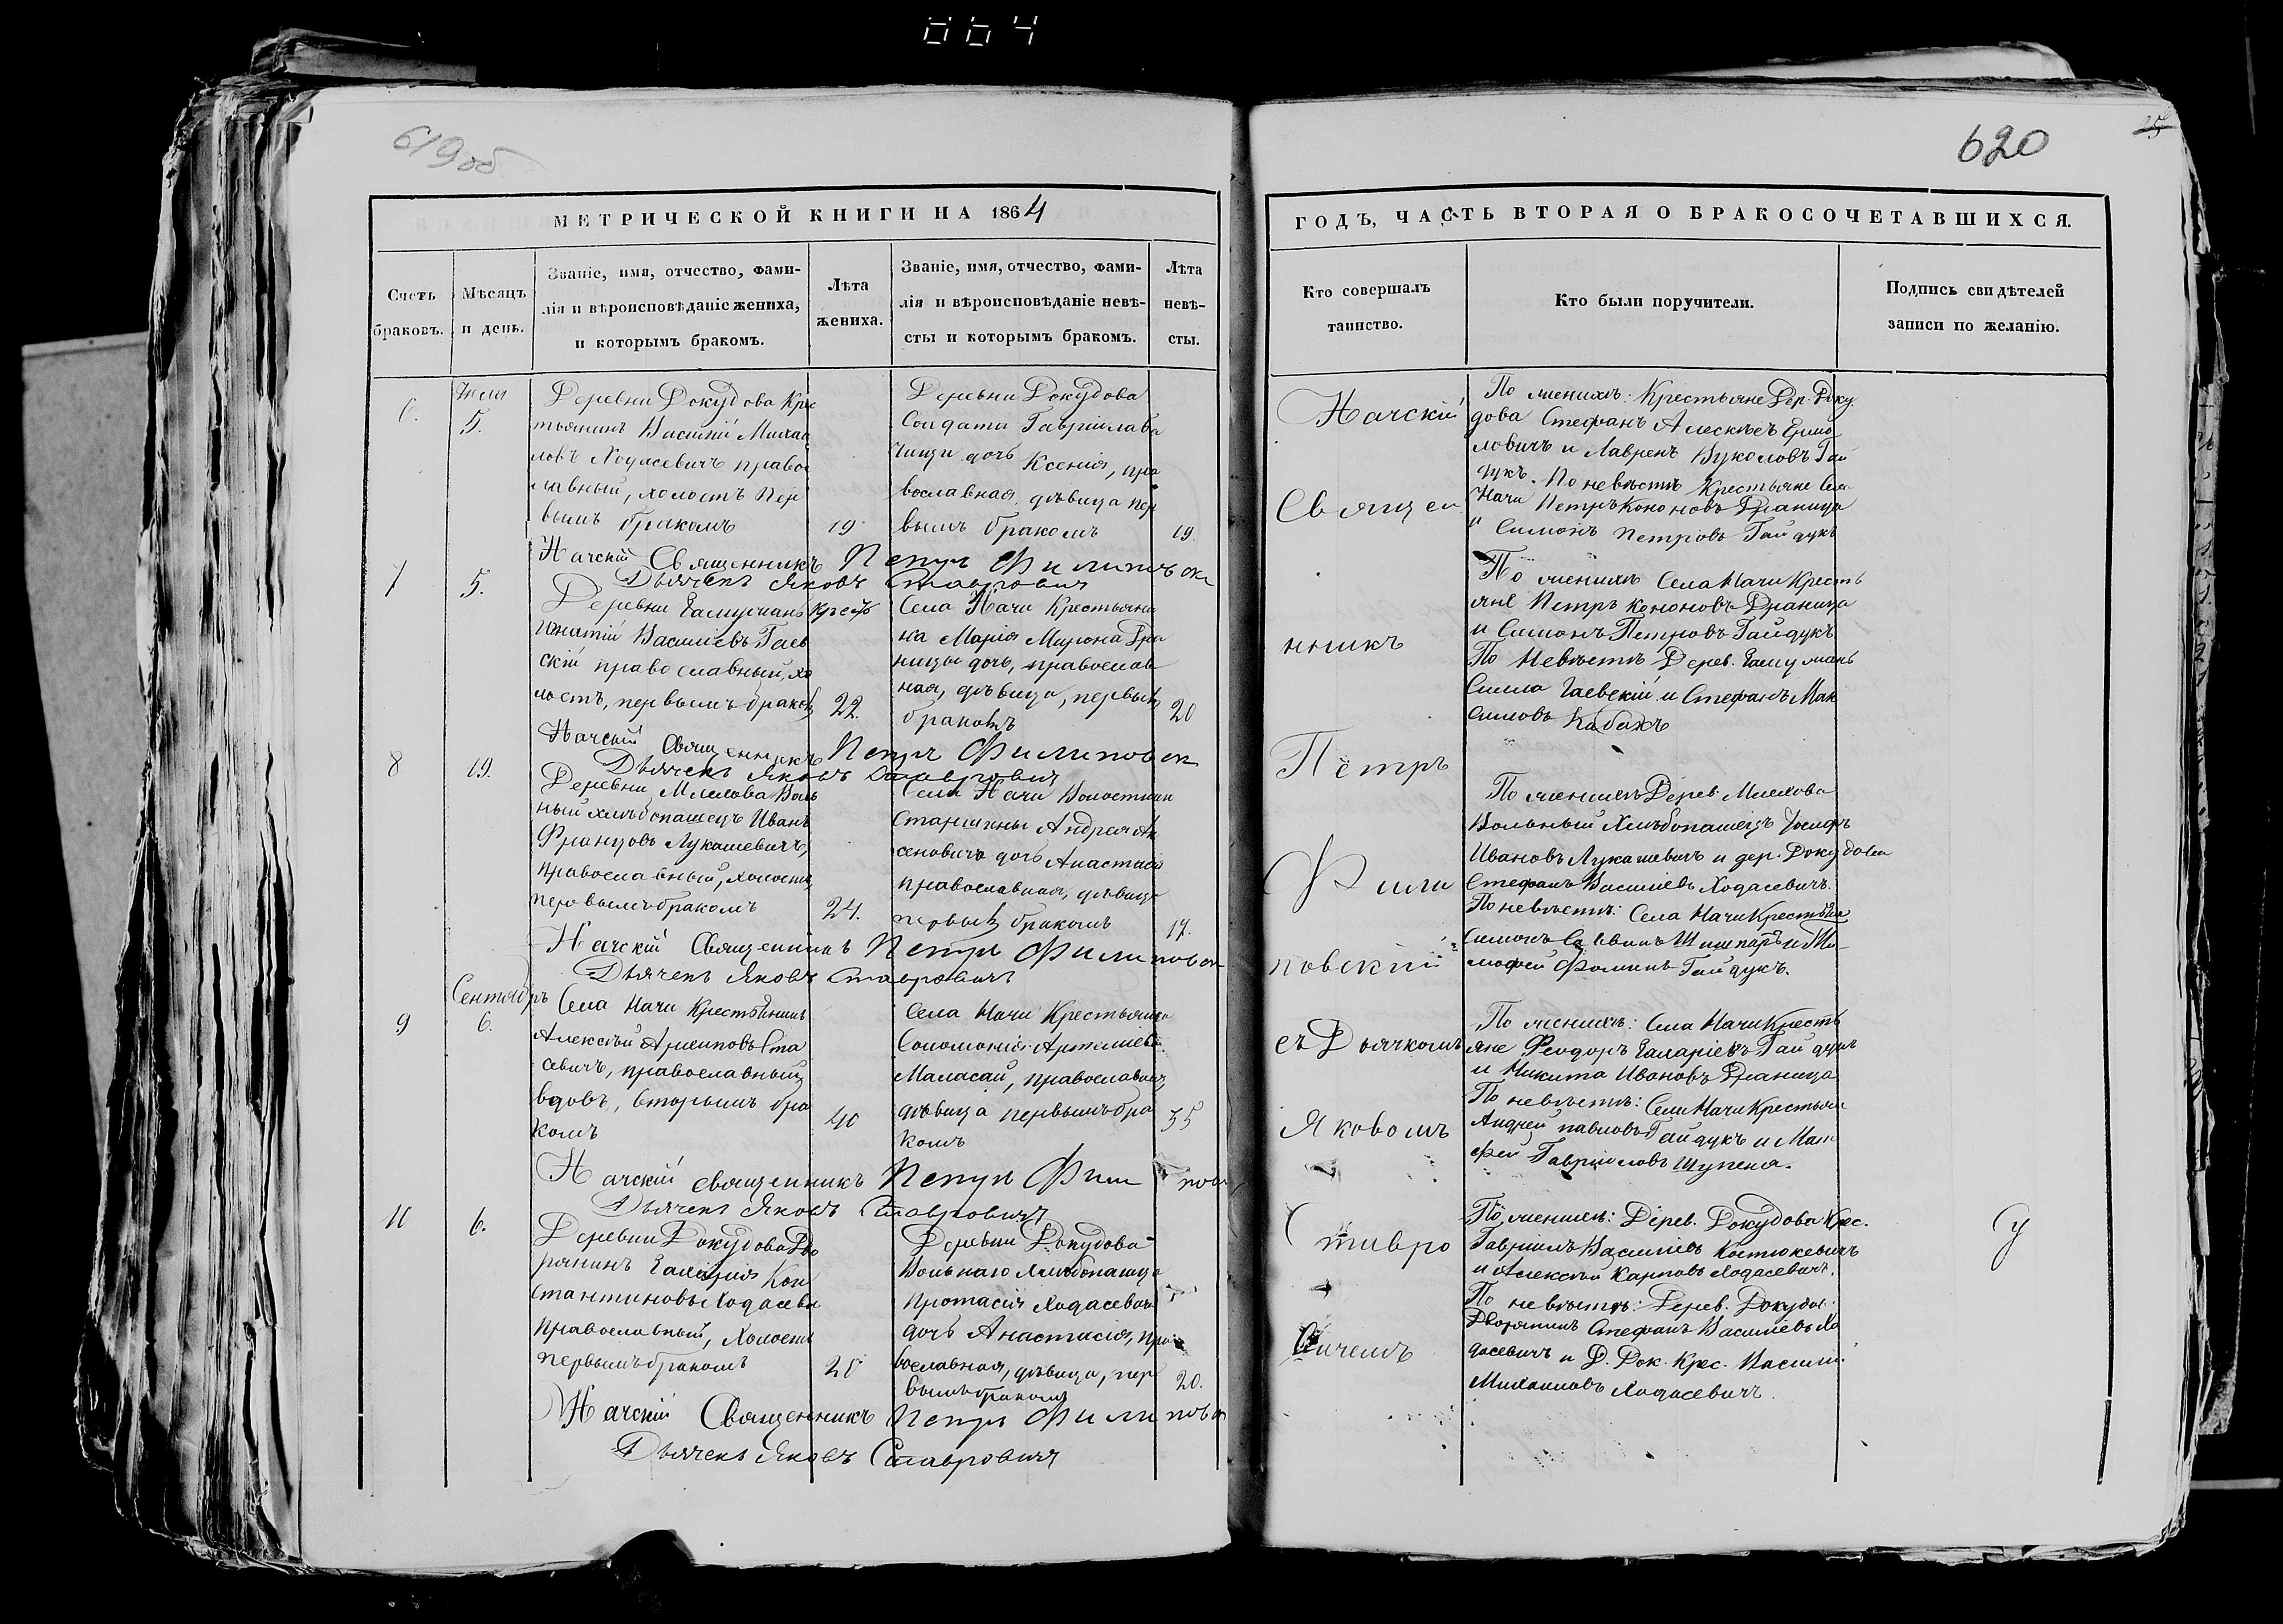 664
619 об
620
МЕТРИЧЕСКОЙ КНИГИ НА 1864
ГОДЪ, ЧАСТЬ ВТОРАЯ О БРАКОСОЧЕТАВШИХСЯ.
Счетъ браковъ.
Мѣсяцъ и день.
Званіе, имя, отчество, фами-
лія и вѣроисповѣданіе жениха,
и которымъ бракомъ.
Лѣта
жениха.
Званіе, имя, отчество, фами-
лія и вѣроисповѣданіе невѣ-
сты и которымъ бракомъ.
Лѣта
невѣ-
сты.
Кто совершалъ
таинство.
Кто были поручители.
Подпись свидѣтелей
записи по желанію.
6.
5.
Деревни Докудова Крес
тьянинъ Василій Михаи
ловъ Ходасевичъ право
славный, холостъ пер
вымъ бракомъ
19
Деревни Докудова
Солдата Гавріила
дочь Ксенія, пра
вославная дѣвица пер
вымъ бракомъ
19.
Начскій Священникъ Петръ Филиповск
Дьячекъ Яковъ Ставровичъ
7
5.
Деревни Крест
Игнатій Василіевъ Гаев
скій православный, хо
лостъ, первымъ браком
22.
Села Начи Крестьяни
на Марія Мирона Дра
ницы дочь, православ
ная, дѣвица, первым
бракомъ
20
Начскій Священникъ Петръ Филиповск
Дьячекъ Яковъ Ставровичъ
8
19.
Деревни Милхова Воль
ный хлѣбопашецъ Иванъ
Францовъ Лукашевичъ,
православный, холостъ,
первымъ бракомъ
24.
Села Начи Волостнаго
Старшины Андрея Ак
сеновича дочь Анастасія
православная, дѣвица
первым бракомъ
17.
Начскій Священникъ Петръ Филиповск
Дьячекъ Яковъ Ставровичъ
Сентябрь
9
6.
Села Начи Крестьянинъ
Алексѣй Архиповъ Ста
севичъ, православный
вдовъ, вторымъ бра
комъ
40
Села Начи Крестьянка
Соломонія Артеміева
Маласай, православная,
дѣвица первымъ бра
комъ
35
Начскій священникъ Петръ Фили пов
Дьячекъ Яковъ Ставровичъ
10
6.
Деревни Докудова Дво
рянинъ Кон
стантиновъ Ходасевич
православный, холостъ
первымъ бракомъ
Деревни Докудова
Вольнаго хлѣбопашца
Протасія Ходасевича
дочь Анастасія, пра
вославная, дѣвица, пер
вымъ бракомъ
20.
Начскій Священникъ Петръ Филиповск
Дьячекъ Яковъ Ставровичъ
Начскій
Священ
никъ
Петръ
Фили
повскій
съ Дьячкомъ
Яковомъ
Ставро
вичемъ
По женихѣ: Крестьяне Дер. Доку
дова Стефанъ Алексѣевъ Ермо
ловичъ и Лавренъ Вуколовъ Гай
дукъ. По невѣстѣ Крестьяне Села
Начи Петръ Кононовъ Драница
и Симонъ Петровъ Гайдукъ
По женихѣ Села Начи Кресть
яне Петръ Кононовъ Драница
и Симонъ Петровъ Гайдукъ
По Невѣстѣ Дерев.
Гаевскій и Стефанъ Мак
симовъ Кабакъ
По женихѣ Дерев. Милхова
Вольный Хлѣбопашецъ Іосифъ
Ивановъ Лукашевичъ и дер. Докудова
Стефанъ Василіевъ Ходасевичъ.
По невѣстѣ: Села Начи Крестьяне
Симонъ Шишпаръ и Ти
мофей Фоминъ Гайдукъ.
По женихѣ: Села Начи Кресть
яне Феодоръ Гайдукъ
и Никита Ивановъ Драница
По невѣстѣ: Села Начи Крестьяне
Андрей Павловъ Гайдукъ и Мат
фей Гавріиловъ Шупеня.
По женихѣ: Дерев. Докудова Крес.
Гавріилъ Василіевъ Костюкевичъ
и Алексѣй Карповъ Ходасевичъ.
По невѣстѣ: Дерев. Докудов.
Дворянинъ Стефанъ Василіевъ Хо
дасевичъ и Д. Док. Крес. Василій
Михаиловъ Ходасевичъ.